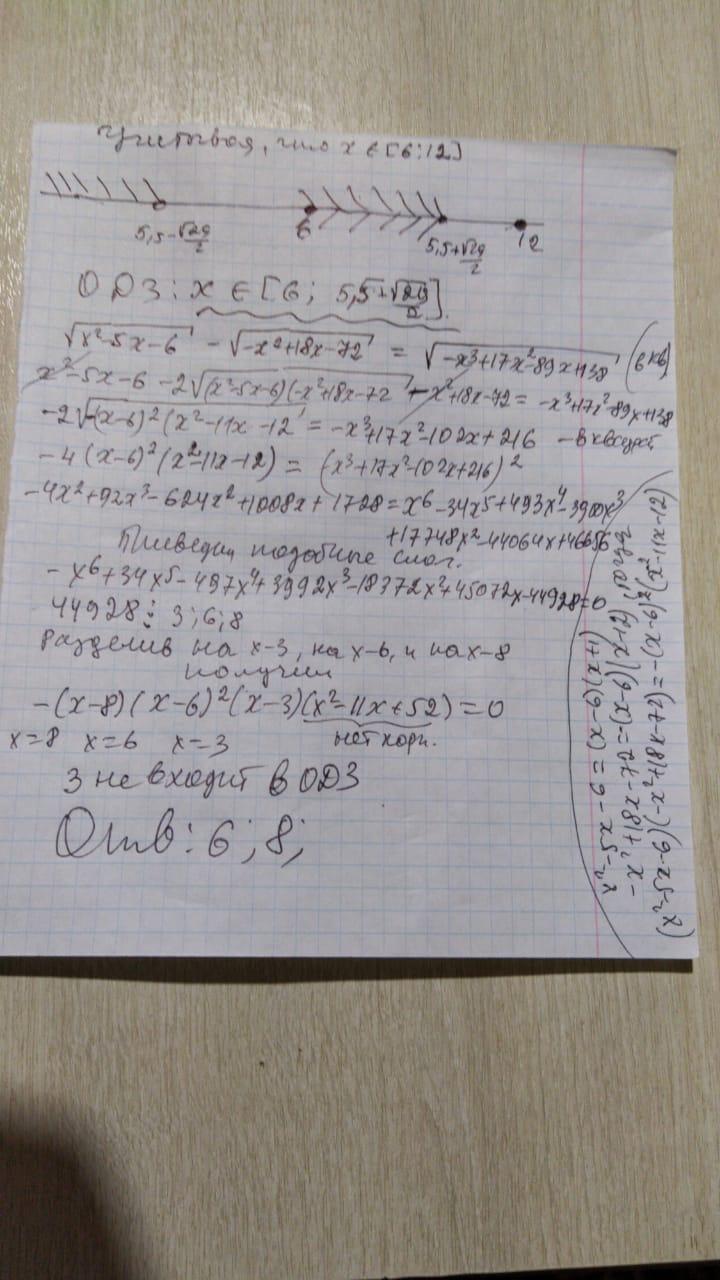 Учитывая, что x ∈ [6; 12]
5,5-√29/2 6 5,5+√29/2 12
ОДЗ: x ∈ [6; 5,5+√29/2].
√x²-5x-6 - √-x²+18x-72 = √-x³+17x²-89x+138 (в кв)
x²-5x-6 -2√(x²-5x-6)(-x²+18x-72 - x²+18x-72 = -x³+17x²-89x+138
-2√-(x-6)²(x²-11x-12 = -x³+17x²-102x+216 - в квадрат
-4(x-6)²(x²-11x-12) = (x³+17x²-102x+216)²
-4x²+92x³-624x²+1008x+1728 = x⁶-34x⁵+493x⁴-3900x³
+17748x²-44064x+46656
Приведём подобные слаг.
-x⁶+34x⁵-497x⁴+3992x³-18372x²+45072x-44928=0
44928 ⋮ 3; 6; 8
Разделив на x-3, на x-6, и на x-8
получим
-(x-8)(x-6)²(x-3)(x²-11x+52)=0
x=8 x=6 x=3 нет корн.
3 не входит в ОДЗ
Отв: 6; 8;
x²-5x-6 = (x-6)(x+1)
-x²+18x-72=-(x-6)(x-12), тогда
(x²-5x-6)(-x²+18x-72)=-(x-6)²(x²-11x-12)